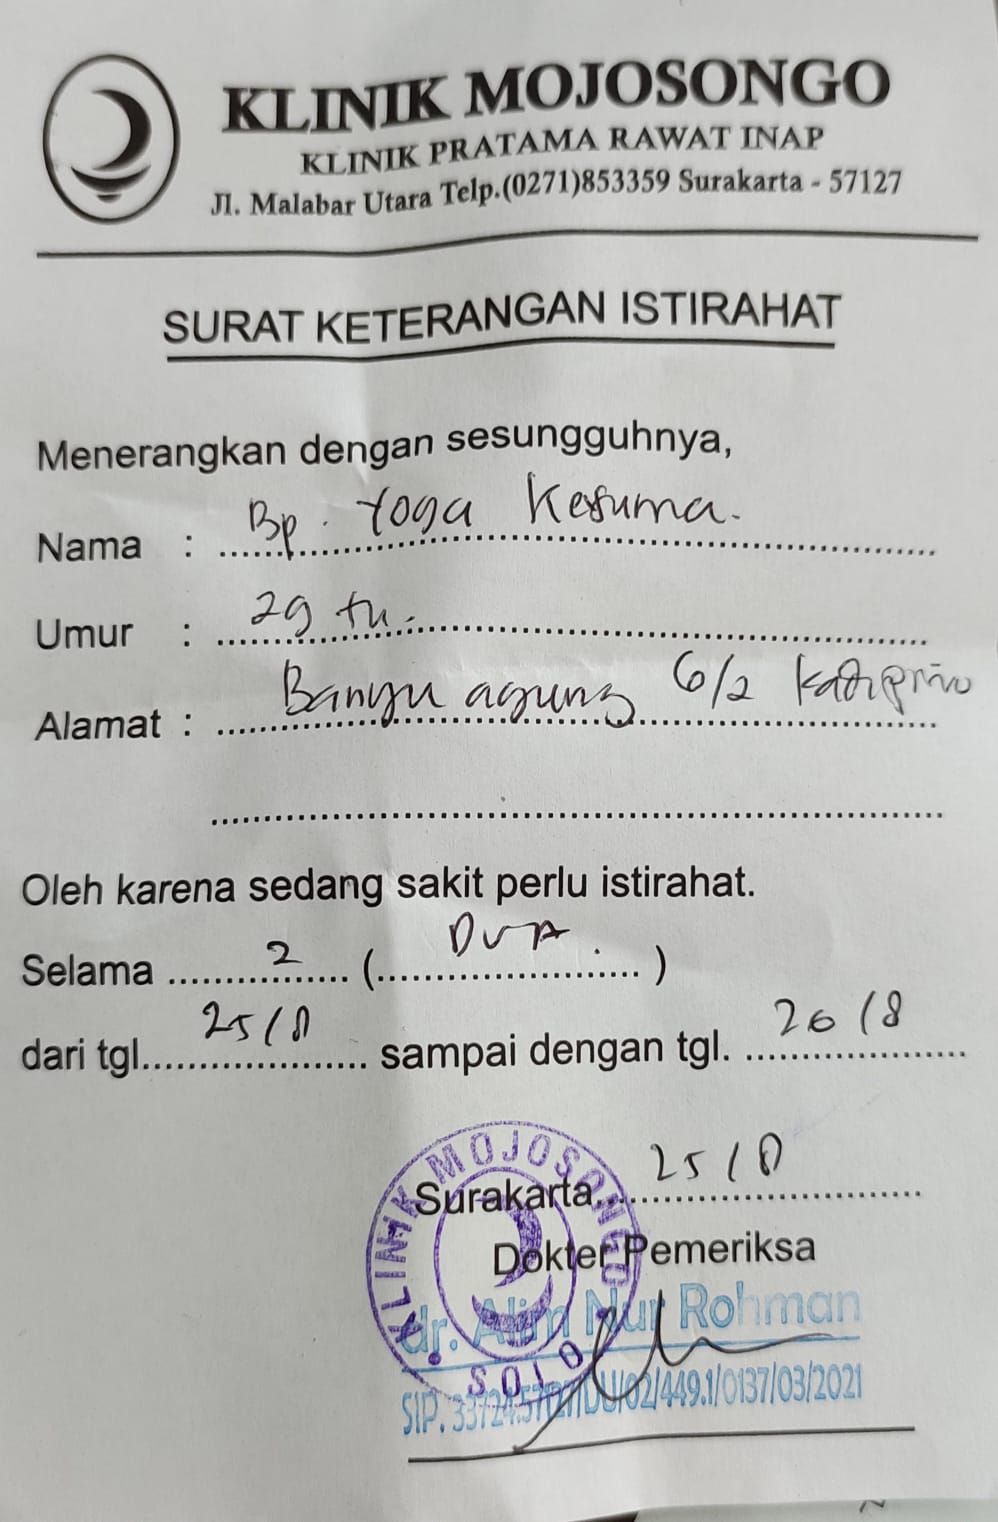 KLINIK MOJOSONGO
KLINIK PRATAMA RAWAT INAP
Jl. Malabar Utara Telp.(0271)853359 Surakarta - 57127
SURAT KETERANGAN ISTIRAHAT
Menerangkan dengan sesungguhnya,
Nama : Bp. Yoga Kesuma.
Umur : 29 th.
Alamat : Banyu agung 6/2 Kadipiro
Oleh karena sedang sakit perlu istirahat.
Selama 2 (DUA)
dari tgl. 25/8 sampai dengan tgl. 26/8
Surakarta, 25/8
KLINIK MOJOSONGO
Dokter Pemeriksa
dr. Alim Nur Rohman
SOLO
SIP. /DU/02/449.1/0137/03/2021